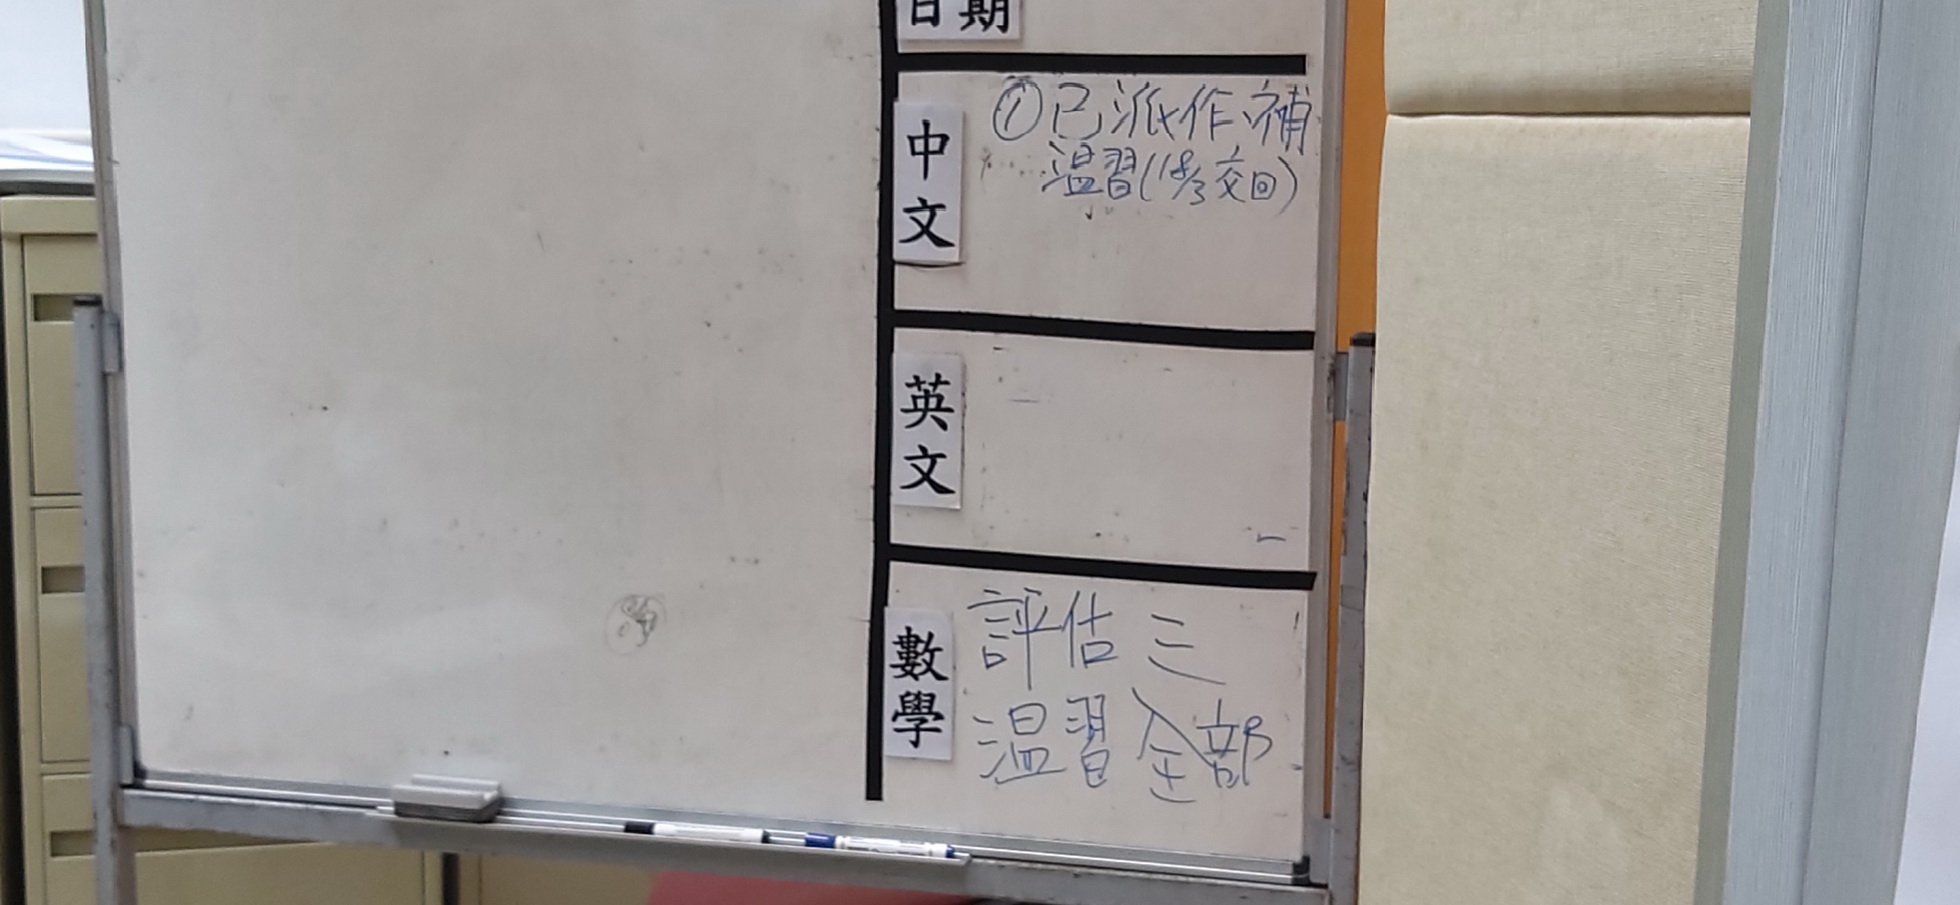 日期
中文
①已派作、補
温習(18/3交回)
英文
數學
評估三
温習全部